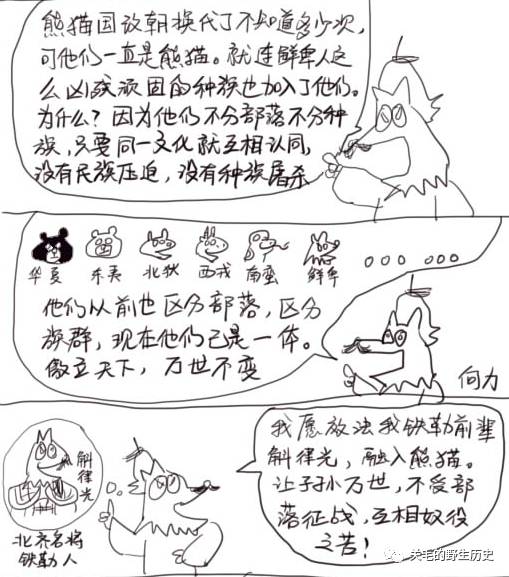 熊猫国改朝换代了不知道多少次，
可他们一直是熊猫。就连鲜卑人这
么凶残顽固的种族也加入了他们。
为什么？因为他们不分部落不分种
族，只要同一文化就互相认同，
没有民族压迫，没有种族屠杀
华夏 东夷 北狄 西戎 南蛮 鲜卑
。。。 。。。
他们从前也区分部落，区分
族群，现在他们已是一体。
傲立天下，万世不变
向力
我愿效法我铁勒前辈
斛律光，融入熊猫。
让子孙万世，不受部
落征战，互相奴役
之苦！
斛律光
北齐名将
铁勒人
关毛的野生历史